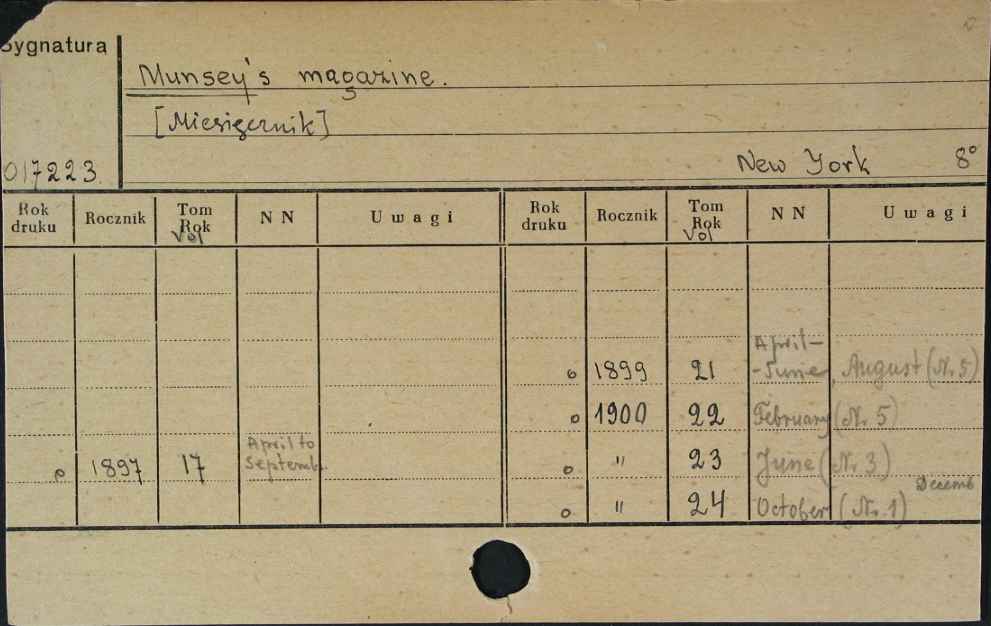 Sygnatura
Munsey's magazine.
[Miesięcznik]
017223
New York 8°
Rok druku Rocznik Tom Rok Vol N N Uwagi Rok druku Rocznik Tom Rok Vol N N Uwagi
o 1899 21 April - -June, August (Nr. 5)
o 1900 22 February (Nr. 5)
o 1897 17 April to Septemb. o " 23 June (Nr 3)
o " 24 October (Nr. 1) Decemb